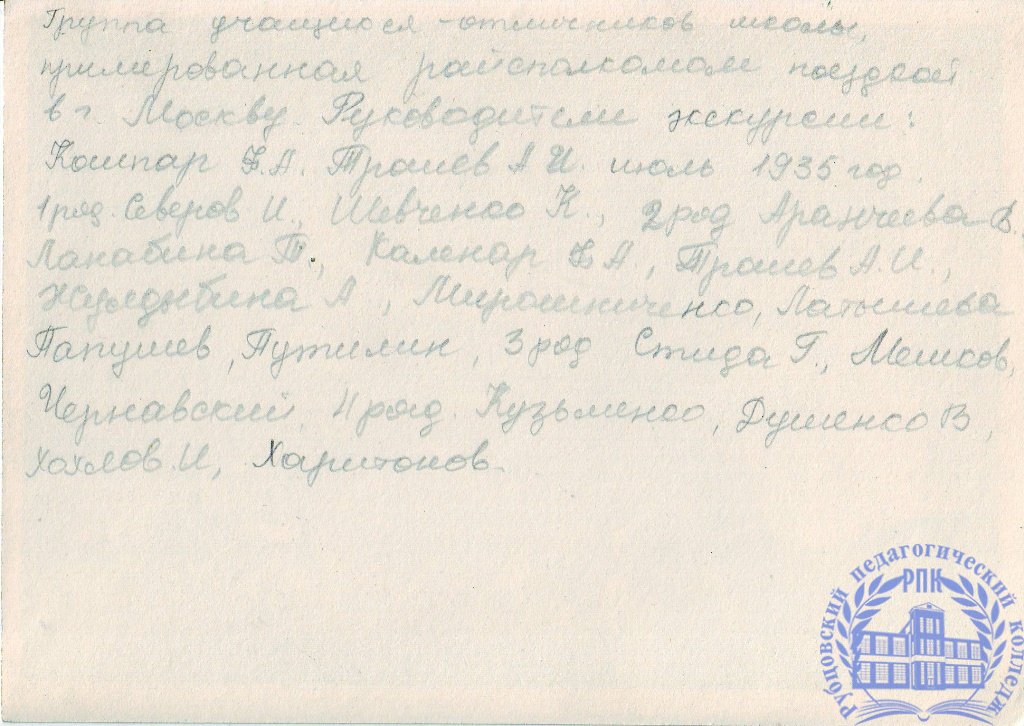 Группа учащихся-отличников школы,
примированная райсполкомам поездкой
в г. Москву. Руководители экскурсии:
Кошпар Ф.А. Трошев А И. июль 1935 год.
1 ряд. Северов И., Шевченко К., 2 ряд Аранчеева В.,
Лакабина Т., Каленар Ф А., Трошев А.И.,
А., Мирошниченко, Латышева
Папушев, Путилин, 3 ряд Стида Г., Мешков,
Чернавский, 4 ряд. Кузьменко, Душенко В,
Хохлов И, Харитонов.
Рубцовский педагогический колледж
РПК